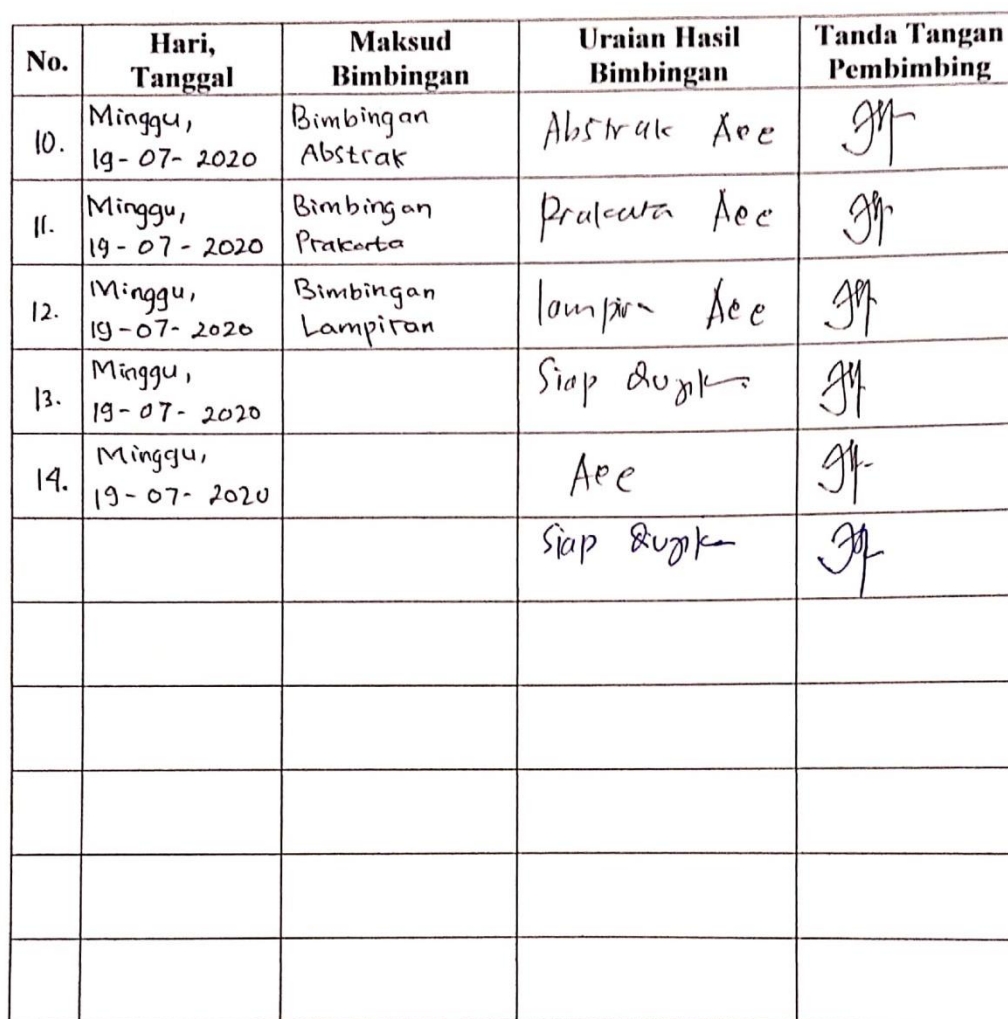 No.
Hari,
Tanggal
Maksud
Bimbingan
Uraian Hasil
Bimbingan
Tanda Tangan
Pembimbing
10.
Minggu,
19-07-2020
Bimbingan
Abstrak
Abstrak Acc
11.
Minggu,
19-07-2020
Bimbingan
Prakata
Prakata Acc
12.
Minggu,
19-07-2020
Bimbingan
Lampiran
lampiran Acc
13.
Minggu,
19-07-2020
Siap
14.
Minggu,
19-07-2020
Acc
Siap